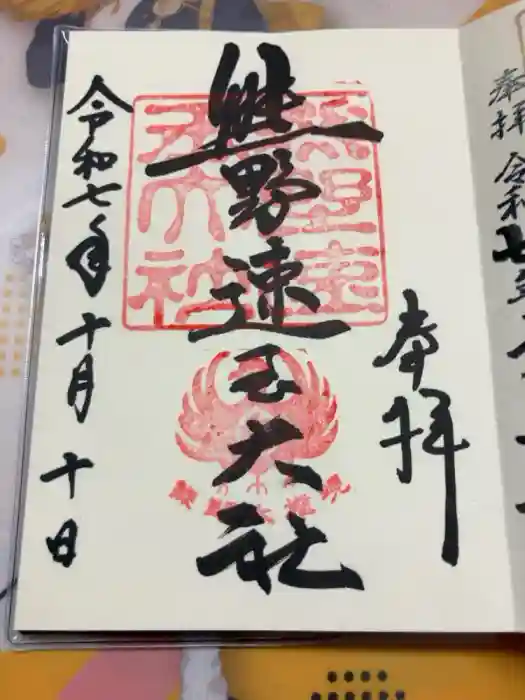 奉拝
令和七
奉拝
熊野速玉大社
熊野速玉大社
令和七年十月十日